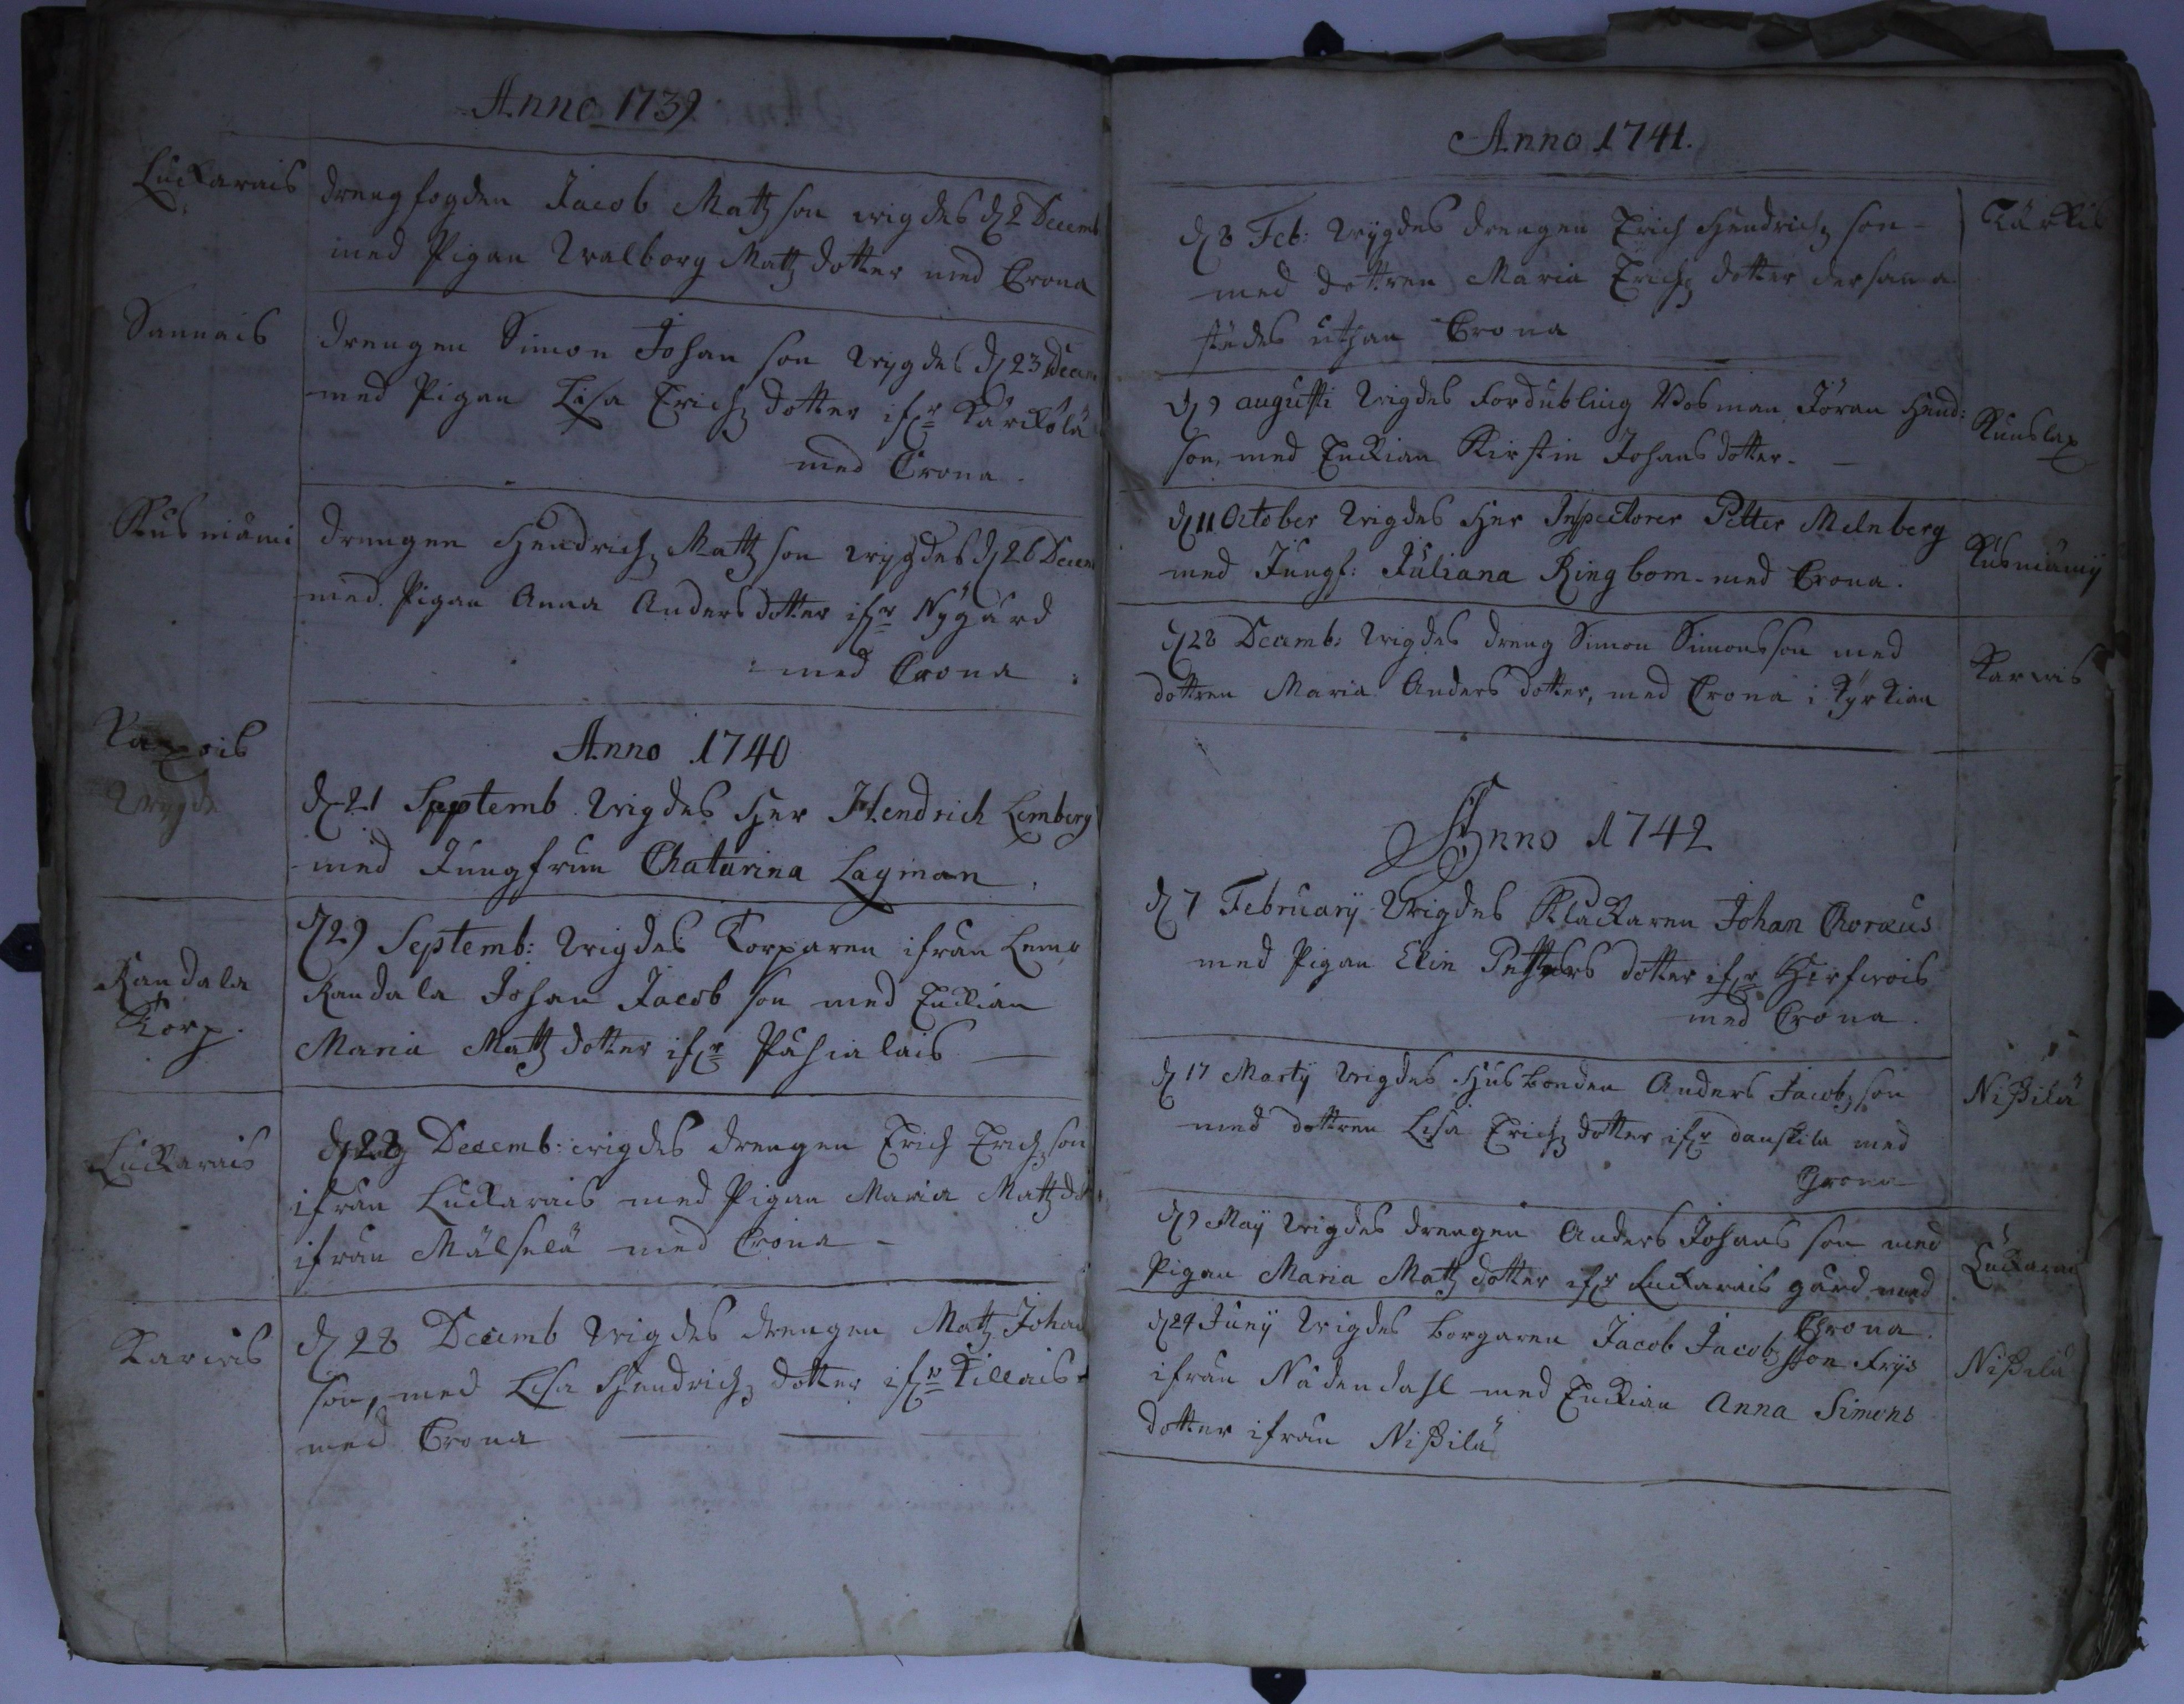 Anno 1739
Luckarais
drengfogden Jacob Mattz son wigdes d 2 Decemb
med Pigan Walborg Mattz dotter med Crona
Sannais
drengen Simon Johan son wygdes d 23 Decem
med Pigan Lisa Erichz dotter ifr Kärckölä
med Crona.
Kusniämi
drengen Hendrich Mattz son wygdes d 26 Decem
med Pigan Anna Anders dotter ifr Nygård
med Crona
Anno 1740
d 21 Septemb wigdes Her Hendrich Lemberg
med Jungfrun Chatarina Lagman
Kandala
Torp.
d 29 Septemb: wigdes Torparen ifrån Lemo
Kandala Johan Jacob son med Enckian
Maria Mattz dotter ifr Påhialais
Luckarais
d 28 Decemb: wigdes drengen Erich Erichz son
ifrån Luckarais med Pigan Maria Mattz dot
ifrån Mälselä med Crona
Karwis
d 28 Decemb wigdes drengen Mattz Johan
son, med Lisa Hendrichz dotter ifr Killais
med Crona
Anno 1741.
d 8 Feb: wygdes drengen Erich Hendrichz son
med dottren Maria Erichz dotter dersama
städes uthan Crona
d 9 augusti wigdes Fordubling Bosman Jöran Hend:
son, med Enckian Kirstin Johans dotter
Kunslax
d 11 October wigdes Her Inspectoren Petter Melnberg
med Jungf: Juliana Ringbom med Crona.
Kusniämij
d 28 Decemb: wigdes dreng Simon Simonsson med
dottren Maria Anders dotter, med Crona i Kyrkian
Karwis
Anno 1742
d 7 February wigdes Klåckaren Johan Choræus
med Pigan Elin Petters dotter ifr Hirfwois
med Crona.
d 17 Marty wigdes Husbonden Anders Jacobz son
med dottren Lisa Erichz dotter ifr danskila med
Crona
Nißilä
d 9 Maij wigdes drengen Anders Johans son med
Pigan Maria Mattz dotter ifr Luckarais gård med
Crona.
Luckarais
d 24 Junij wigdes borgaren Jacob Jacobz son Frijs
ifrån Nådendahl med Enckian Anna Simons
dotter ifrån Nißilä
Nißilä